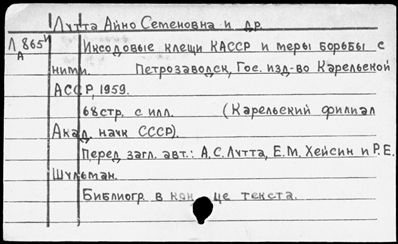 Лутта Айно Семеновна и др.
Л 865 и Иксодовые клещи КАССР и меры борьбы с
А
ними. Петрозаводск, Гос. изд-во Карельской
АССР, 1959.
68 стр. с илл. (Карельский филиал
Акад. наук СССР).
Перед загл. авт.: А.С. Лутта, Е.М. Хейсин и Р.Е.
Шульман.
Библиогр. в кон це текста.